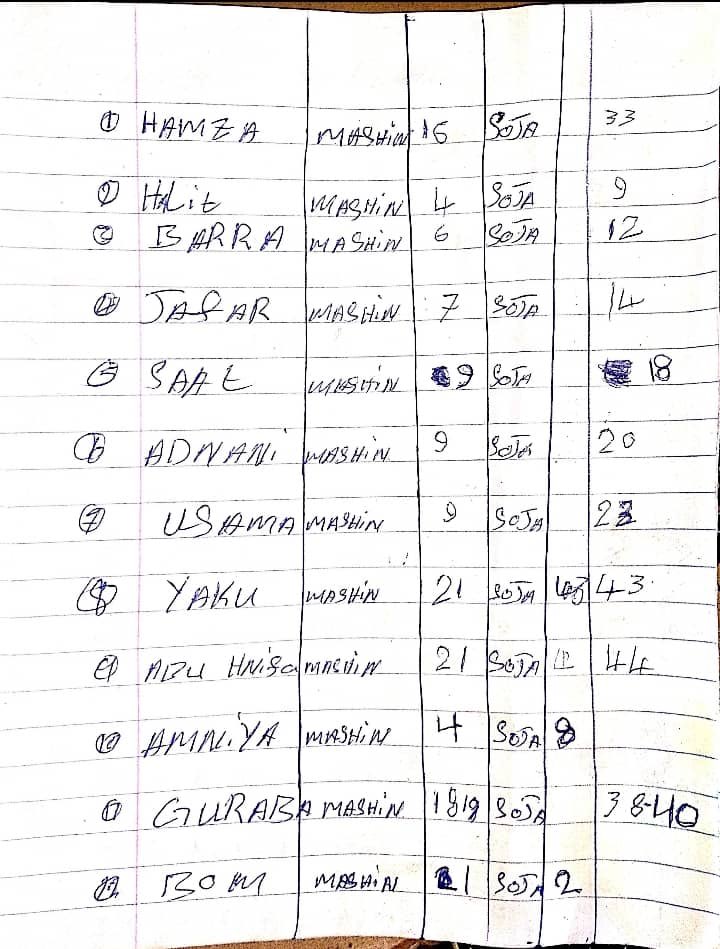 ① HAMZA MASHIN 16 SOJA 33
② HALiE MASHiN 4 SOJA 9
③ BARRA MASHiN 6 SOJA 12
④ JAFAR MASHiN 7 SOJA 14
⑤ SAAE MASHiN 9 SOJA 18
⑥ ADNANi MASHiN 9 SOJA 20
⑦ USAMA MASHiN 9 SOJA
⑧ YAKU MASHiN 21 SOJA 43
⑨ ABU MASHiN 21 SOJA 44
⑩ AMNiYA MASHiN 4 SOJA 8
⑪ GURABA MASHiN SOJA 38-40
⑫ BOM MASHiN 1 SOJA 2